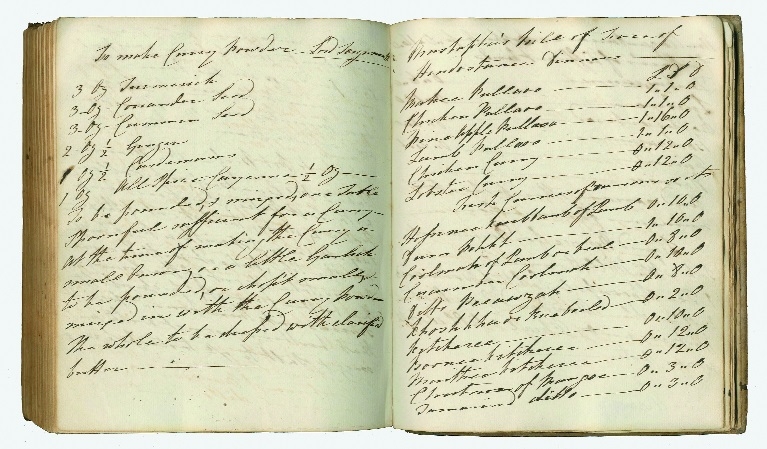 To make Curry Powder. Lord
3 Oz Turmerick
3 Oz Coriander Seed
3 Oz Cummin Seed
2 Oz ½ Ginger
1 Oz ½ Cardemoms
1 Oz All Spice Cayenne ½ Oz
To be pounded & mixed, one Table
Spoonful sufficient for a Curry
At the time of making the Curry a
small berry, or a little Garlick
to be pounded, or chopt small &
mixed in with the Curry Powder
The whole to be with clarified
butter
Bill of Fare of
Hindostanee Dinners
£ S D
Makee Pullaoo 1 " 1 " 0
Chicken Pullaoo 1 " 1 " 0
Pine apple Pullaoo 1 " 16 " 0
Lamb Pullaoo 1 " 1 " 0
Chicken Curry 0 " 12 " 0
Lobster Curry 0 " 12 " 0
of Lamb 0 " 10 " 0
1 " 10 " 0
Coolmah of Lamb or Veal 0 " 8 " 0
Coolmah 0 " 10 " 0
Ditto 0 " 8 " 0
Kabaabed 0 " 2 " 0
Kitcheree 0 " 10 " 0
Kitcheree 0 " 12 " 0
Kitcheree 0 " 12 " 0
of Mangoe 0 " 3 " 0
Tamarind ditto 0 " 3 " 0